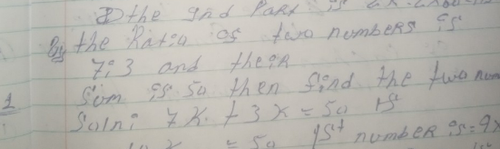 2) the 2nd Part is
By the Ratio of two numbers is
7:3 and their
Sum is 50 then find the two num
1 Soln: 7x + 3x = 50 1st
x = 50 1st number is = 9x